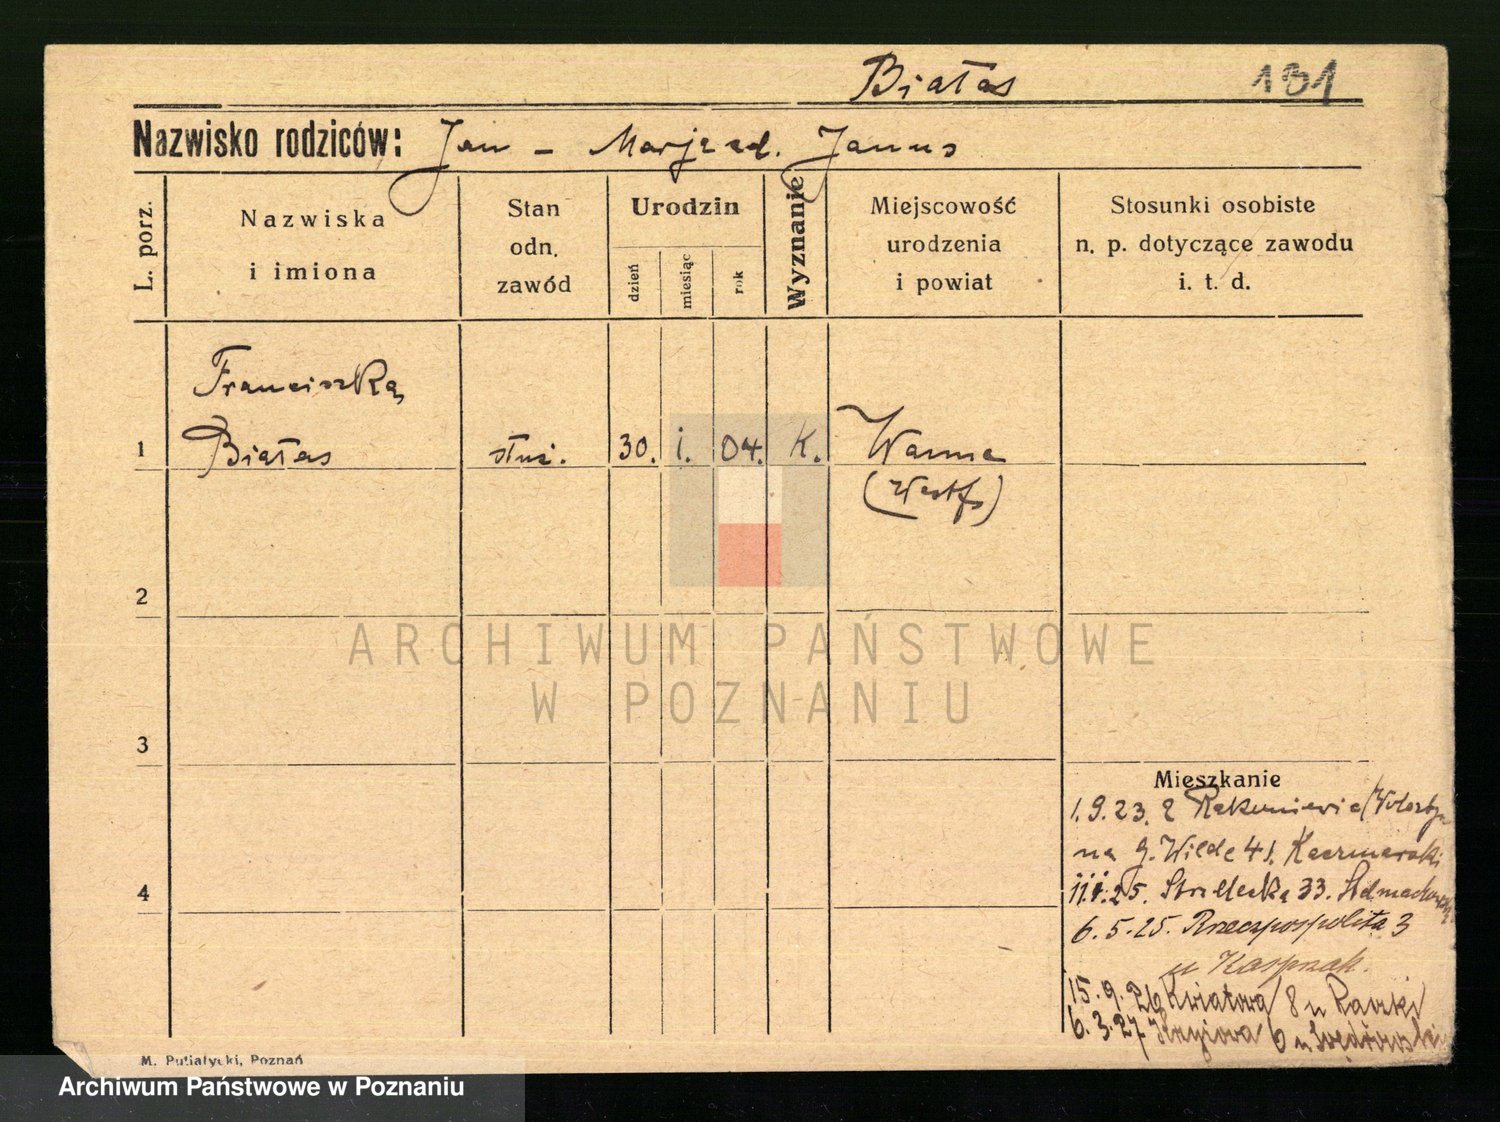 Białas 131
Nazwisko rodziców: Jan - Marja zd. Janus
L. porz.
Nazwiska
i imiona
Stan
odn.
zawód
Urodzin
dzień
miesiąc
rok
Wyznanie
Miejscowość
urodzenia
i powiat
Stosunki osobiste
n. p. dotyczące zawodu
i. t. d.
Franciszka
1 Białas służ. 30. i. 04. K. Wanne
(Westf)
2
ARCHIWUM PAŃSTWOWE
W POZNANIU
3
Mieszkanie
1.9.23. z Rakoniewic (Wolsztyn
na g. Wilde 41. Kaczmarski
25. Strzelecka 33.
6.5.25. Rzeczpospolita 3
u Kasprzak.
15.9.26 Kwiatowa 8 u Raszki
6.3.27 6 u
4
M. Putiatycki, Poznań
Archiwum Państwowe w Poznaniu